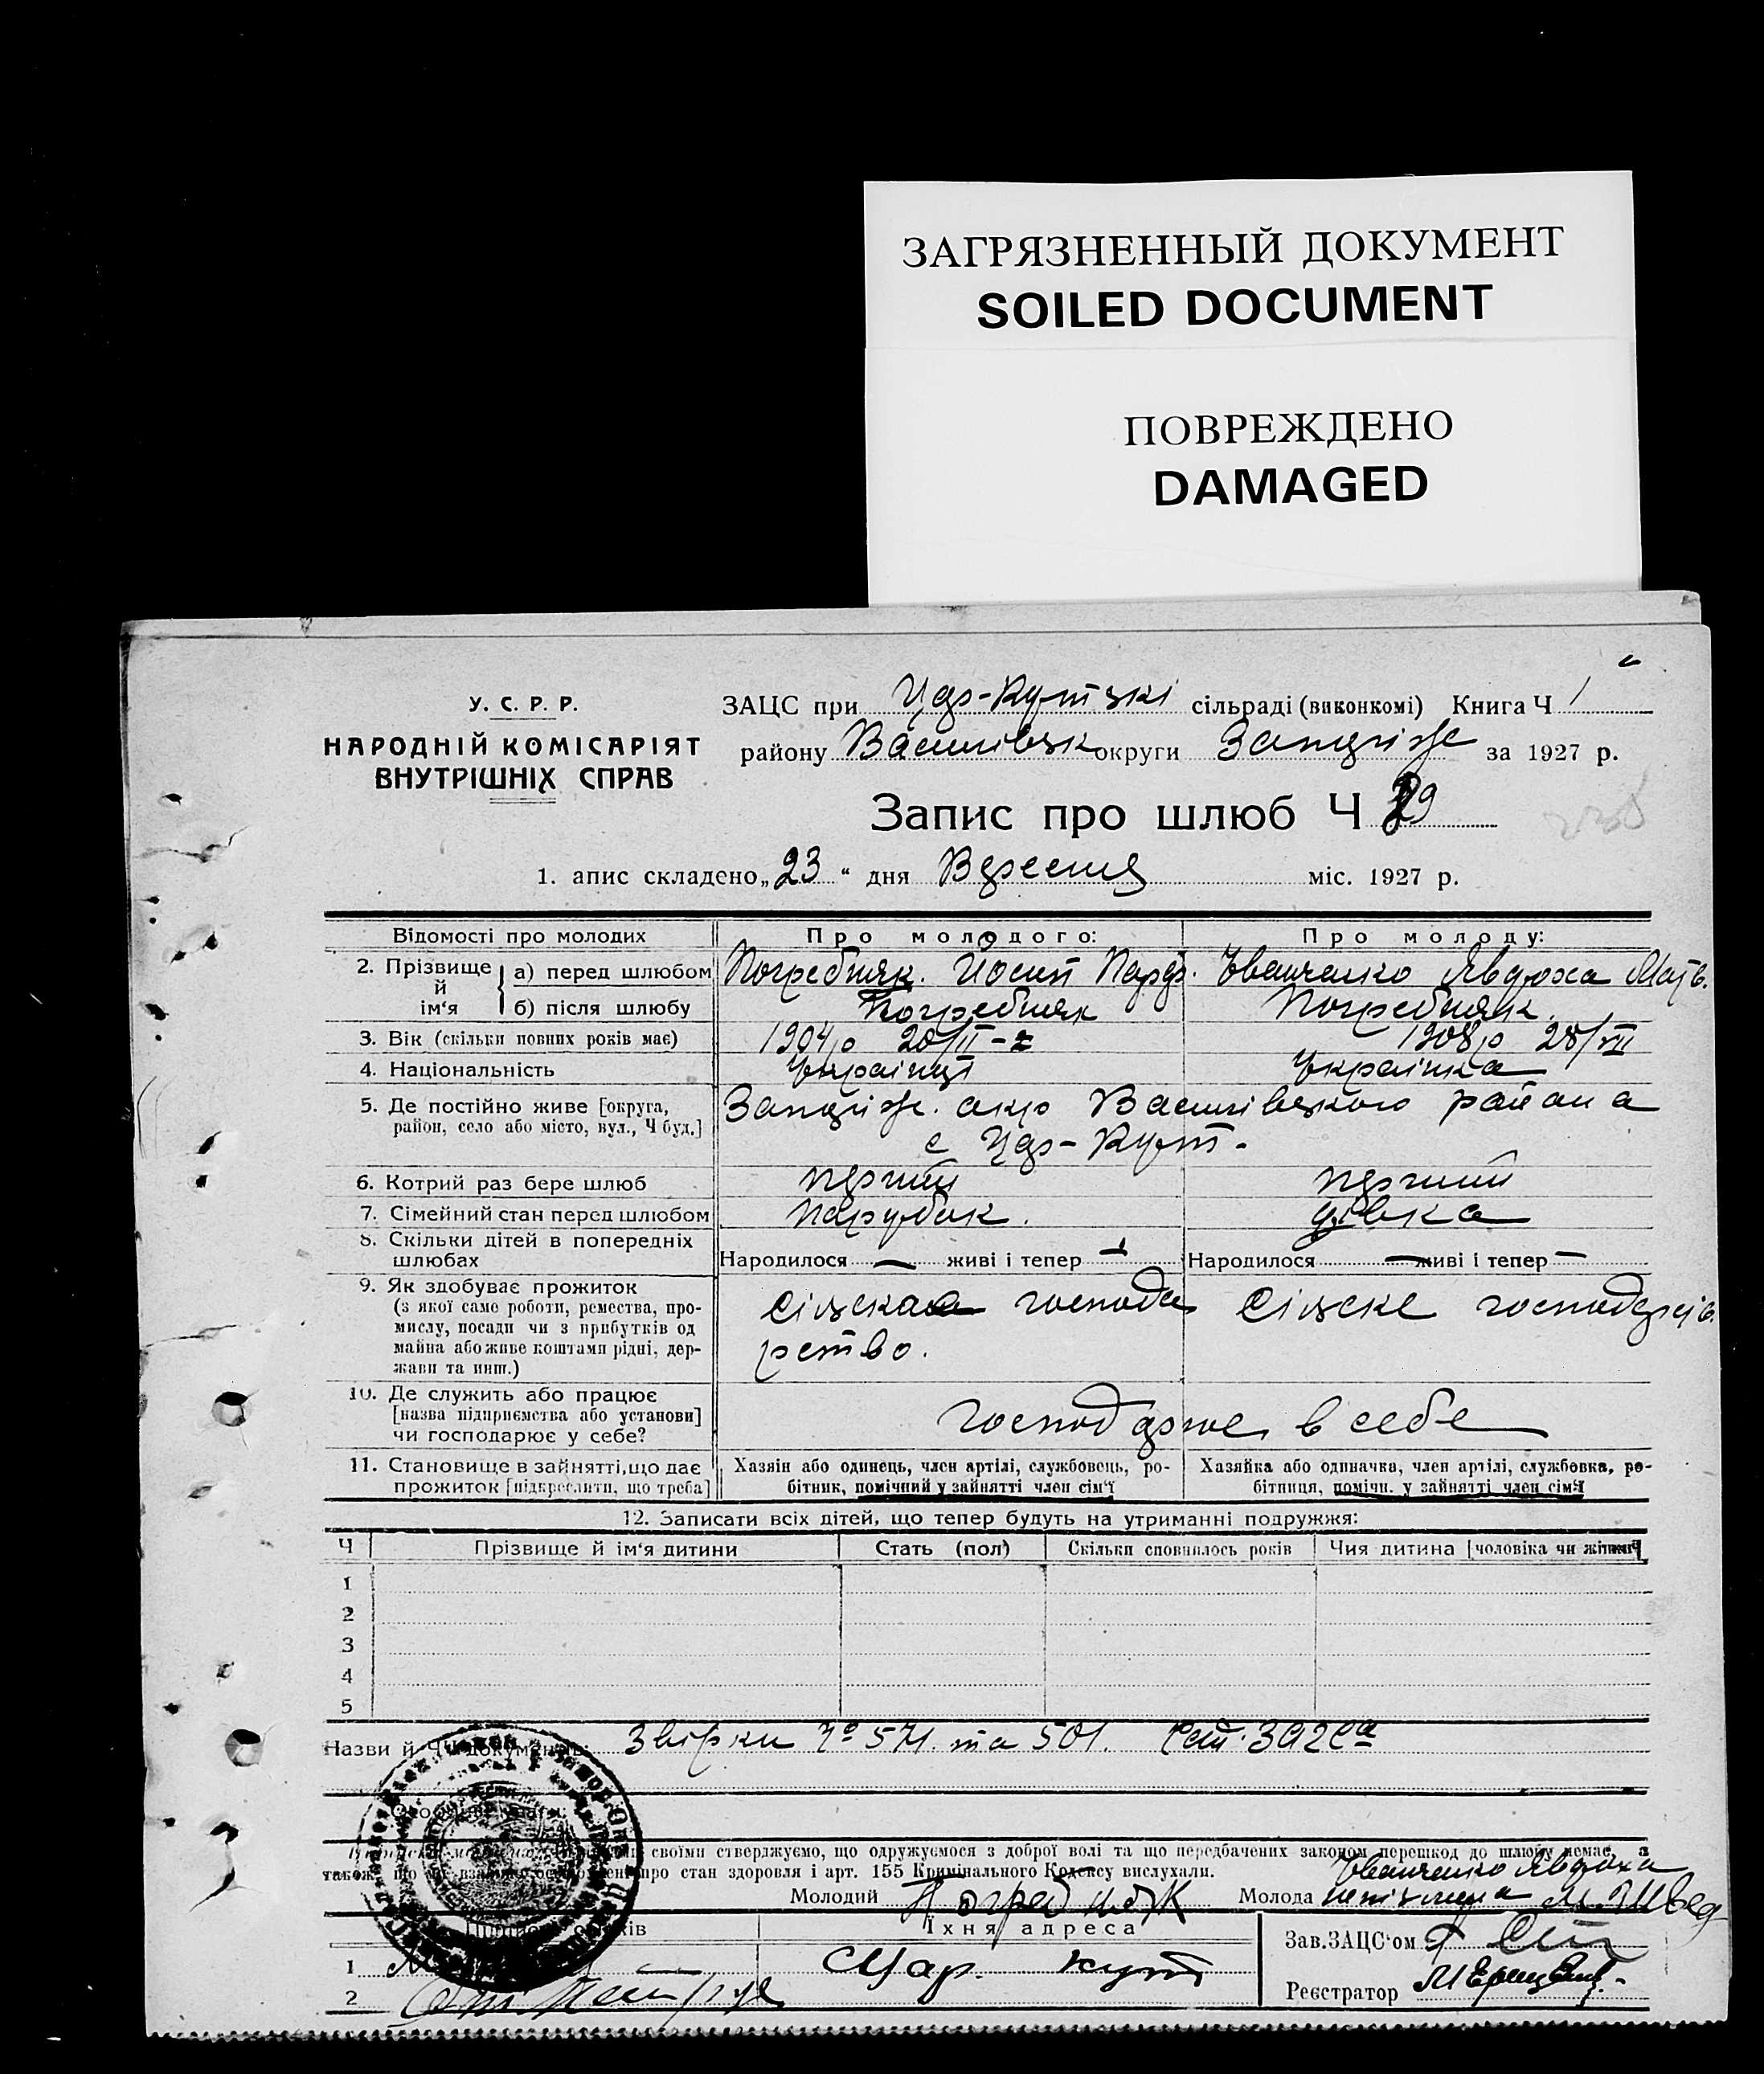 ЗАГРЯЗНЕННЫЙ ДОКУМЕНТ
SOILED DOCUMENT
ПОВРЕЖДЕНО
DAMAGED
У. С. Р. Р.
НАРОДНІЙ КОМІСАРІЯТ
ВНУТРІШНІХ СПРАВ
ЗАЦС при Цар-Кутські сільраді (виконкомі) Книга Ч 1
району Василівськ округи Запоріж за 1927 р.
Запис про шлюб Ч 29
1. апис складено „23“ дня Вересня міс. 1927 р.
Відомості про молодих Про молодого: Про молоду:
2. Прізвище й ім‘я а) перед шлюбом Погребняк. Йосип Парф. Іванченко Явдоха Матв.
б) після шлюбу Погребняк Погребняк.
3. Вік (скільки повних років має) 1904р 20/II 1908р 28/VII
4. Національність Українці Українка
5. Де постійно живе [округа, район, село або місто, вул., Ч буд.] Запоріж. окр Василівского района
с Цар-Кут.
6. Котрий раз бере шлюб перший перший
7. Сімейний стан перед шлюбом Парубок. дівка
8. Скільки дітей в попередніх шлюбах Народилося — живі і тепер — Народилося — живі і тепер —
9. Як здобуває прожиток
(з якої саме роботи, ремества, промислу, посади чи з прибутків од майна або живе коштами рідні, держави та инш.) сільска господарство. Сільске господарств.
10. Де служить або працює
[назва підприємства або установи]
чи господарює у себе? господарює в себе
11. Становище в зайнятті, що дає прожиток [підкреслити, що треба] Хазяїн або одинець, член артілі, службовець, робітник, помічний у зайнятті член сім‘ї Хазяйка або одиначка, член артілі, службовка, робітниця, помічн. у зайнятті член сім‘ї
12. Записати всіх дітей, що тепер будуть на утриманні подружжя:
Ч Прізвище й ім‘я дитини Стать (пол) Скільки сповнилось років Чия дитина [чоловіка чи жінки]
1
2
3
4
5
Назви й ЧЧ документів: Звірки № 571. та 501.
Особливі уваги:
своїми стверджуємо, що одружуємося з доброї волі та що передбачених законом перешкод до шлюбу немає, а
також, що про стан здоровля і арт. 155 Кримінального Кодексу вислухали.
Іванченко Явдоха
Молодий Погребняк Молода неписьмена
Їхня адреса
Зав.ЗАЦС‘ом
1 Цар. кут
2 Реєстратор